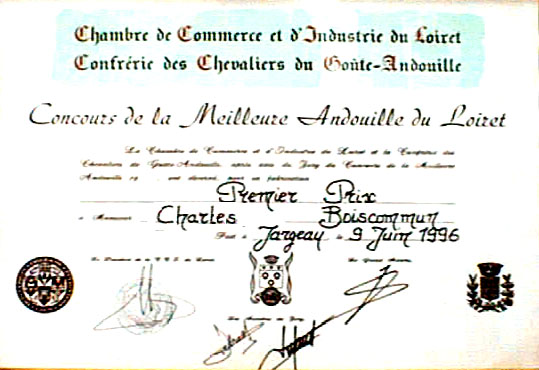 Chambre de Commerce et d'Industrie du Loiret
Confrérie des Chevaliers du Goûte-Andouille
Concours de la Meilleure Andouille du Loiret
La Chambre de Commerce et d'Industrie du Loiret et la Confrérie des
Chevaliers du Goûte-Andouille, après avis du Jury du Concours de la Meilleure
Andouille 19 ont décerné, pour sa fabrication
Premier Prix
à Monsieur Charles Boiscommun
Fait à Jargeau le 9 Juin 1996
Le Président de la C.C.I. du Loiret
Les Membres du Jury